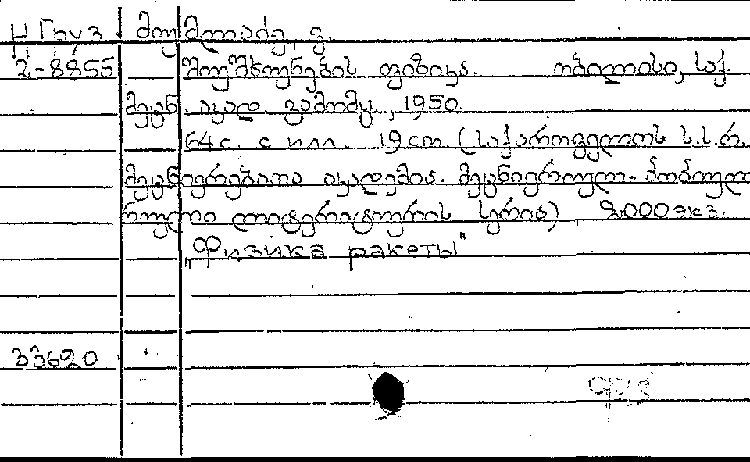 Ц Груз
2-8855
თბილისი, საქ.
მეცნ. აკად. გამომც., 1950.
64 с. с илл. 19 см. (საქართველოს ს.ს.რ.
მეცნიერებათა აკადემია. მეცნიერულ-პოპულა-
რული ლიტერატურის სერია) 2000 экз.
„Физика ракеты"
33620